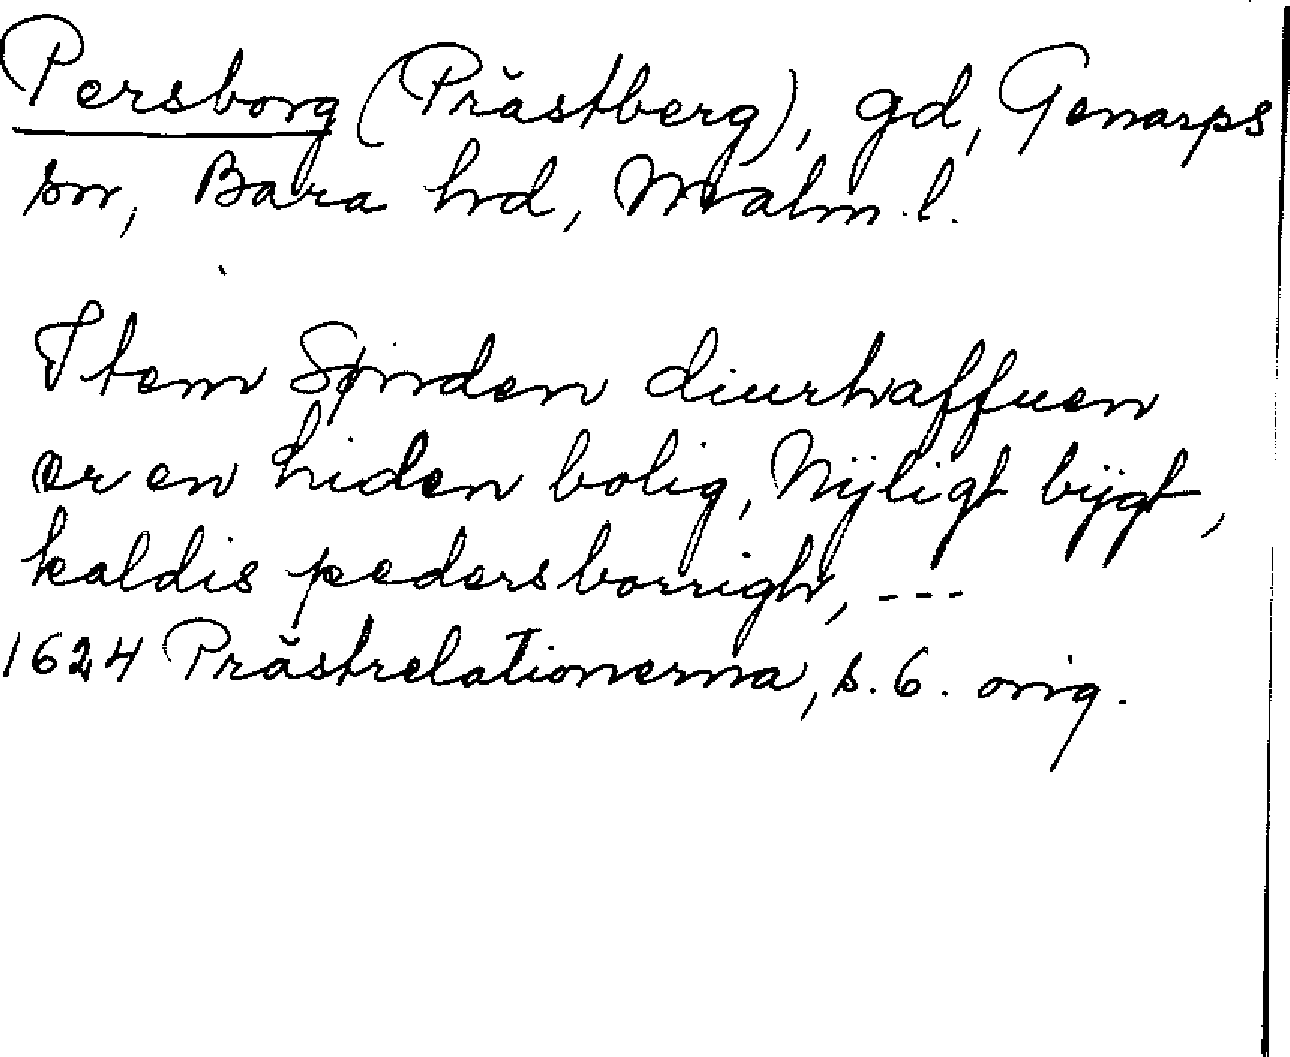 Persborg (Prästberg), gd, Genarps
sn, Bara hd, Malm. l.
Item Sønden diurhaffuen
er en liden bolig, Nÿligt bÿgt,
kaldis pedersborrigh, ---
1624 Prästrelationerna, s. 6. orig.